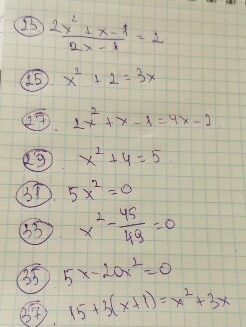 23 (2x² + x - 1)/(2x - 1) = 2
25 x² + 2 = 3x
27. 2x² + x - 1 = 4x - 2
29 x² + 4 = 5
31. 5x² = 0
33. x² - 45/49 = 0
35 5x - 20x² = 0
37. 15 + 3(x + 1) = x² + 3x